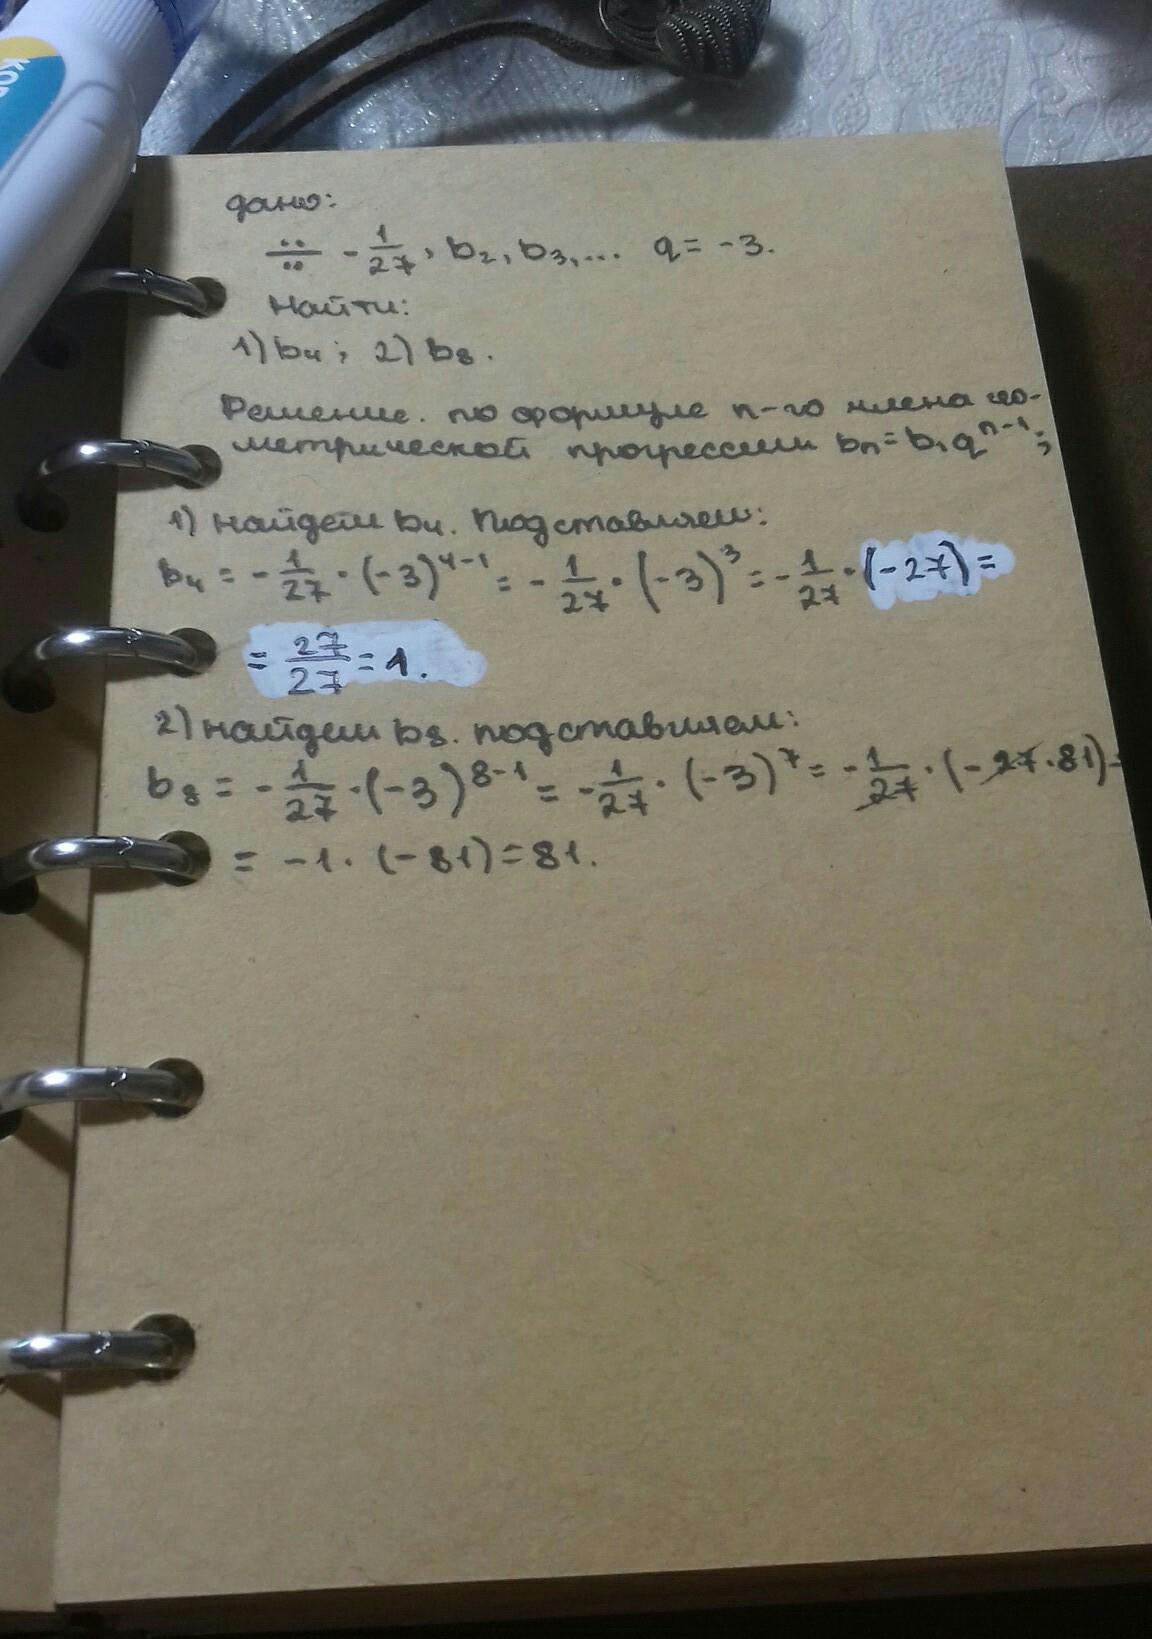 КОР
дано:
∺ - 1/27, b₂, b₃,... q = -3.
Найти:
1) b₄; 2) b₈.
Решение. по формуле n-го члена гео-
метрической прогрессии bₙ = b₁qⁿ⁻¹;
1) найдем b₄. Подставляем:
b₄ = - 1/27 · (-3)⁴⁻¹ = - 1/27 · (-3)³ = - 1/27 · (-27) =
= 27/27 = 1.
2) найдем b₈. подставляем:
b₈ = - 1/27 · (-3)⁸⁻¹ = - 1/27 · (-3)⁷ = - 1/27 · (-27·81) =
= -1 · (-81) = 81.